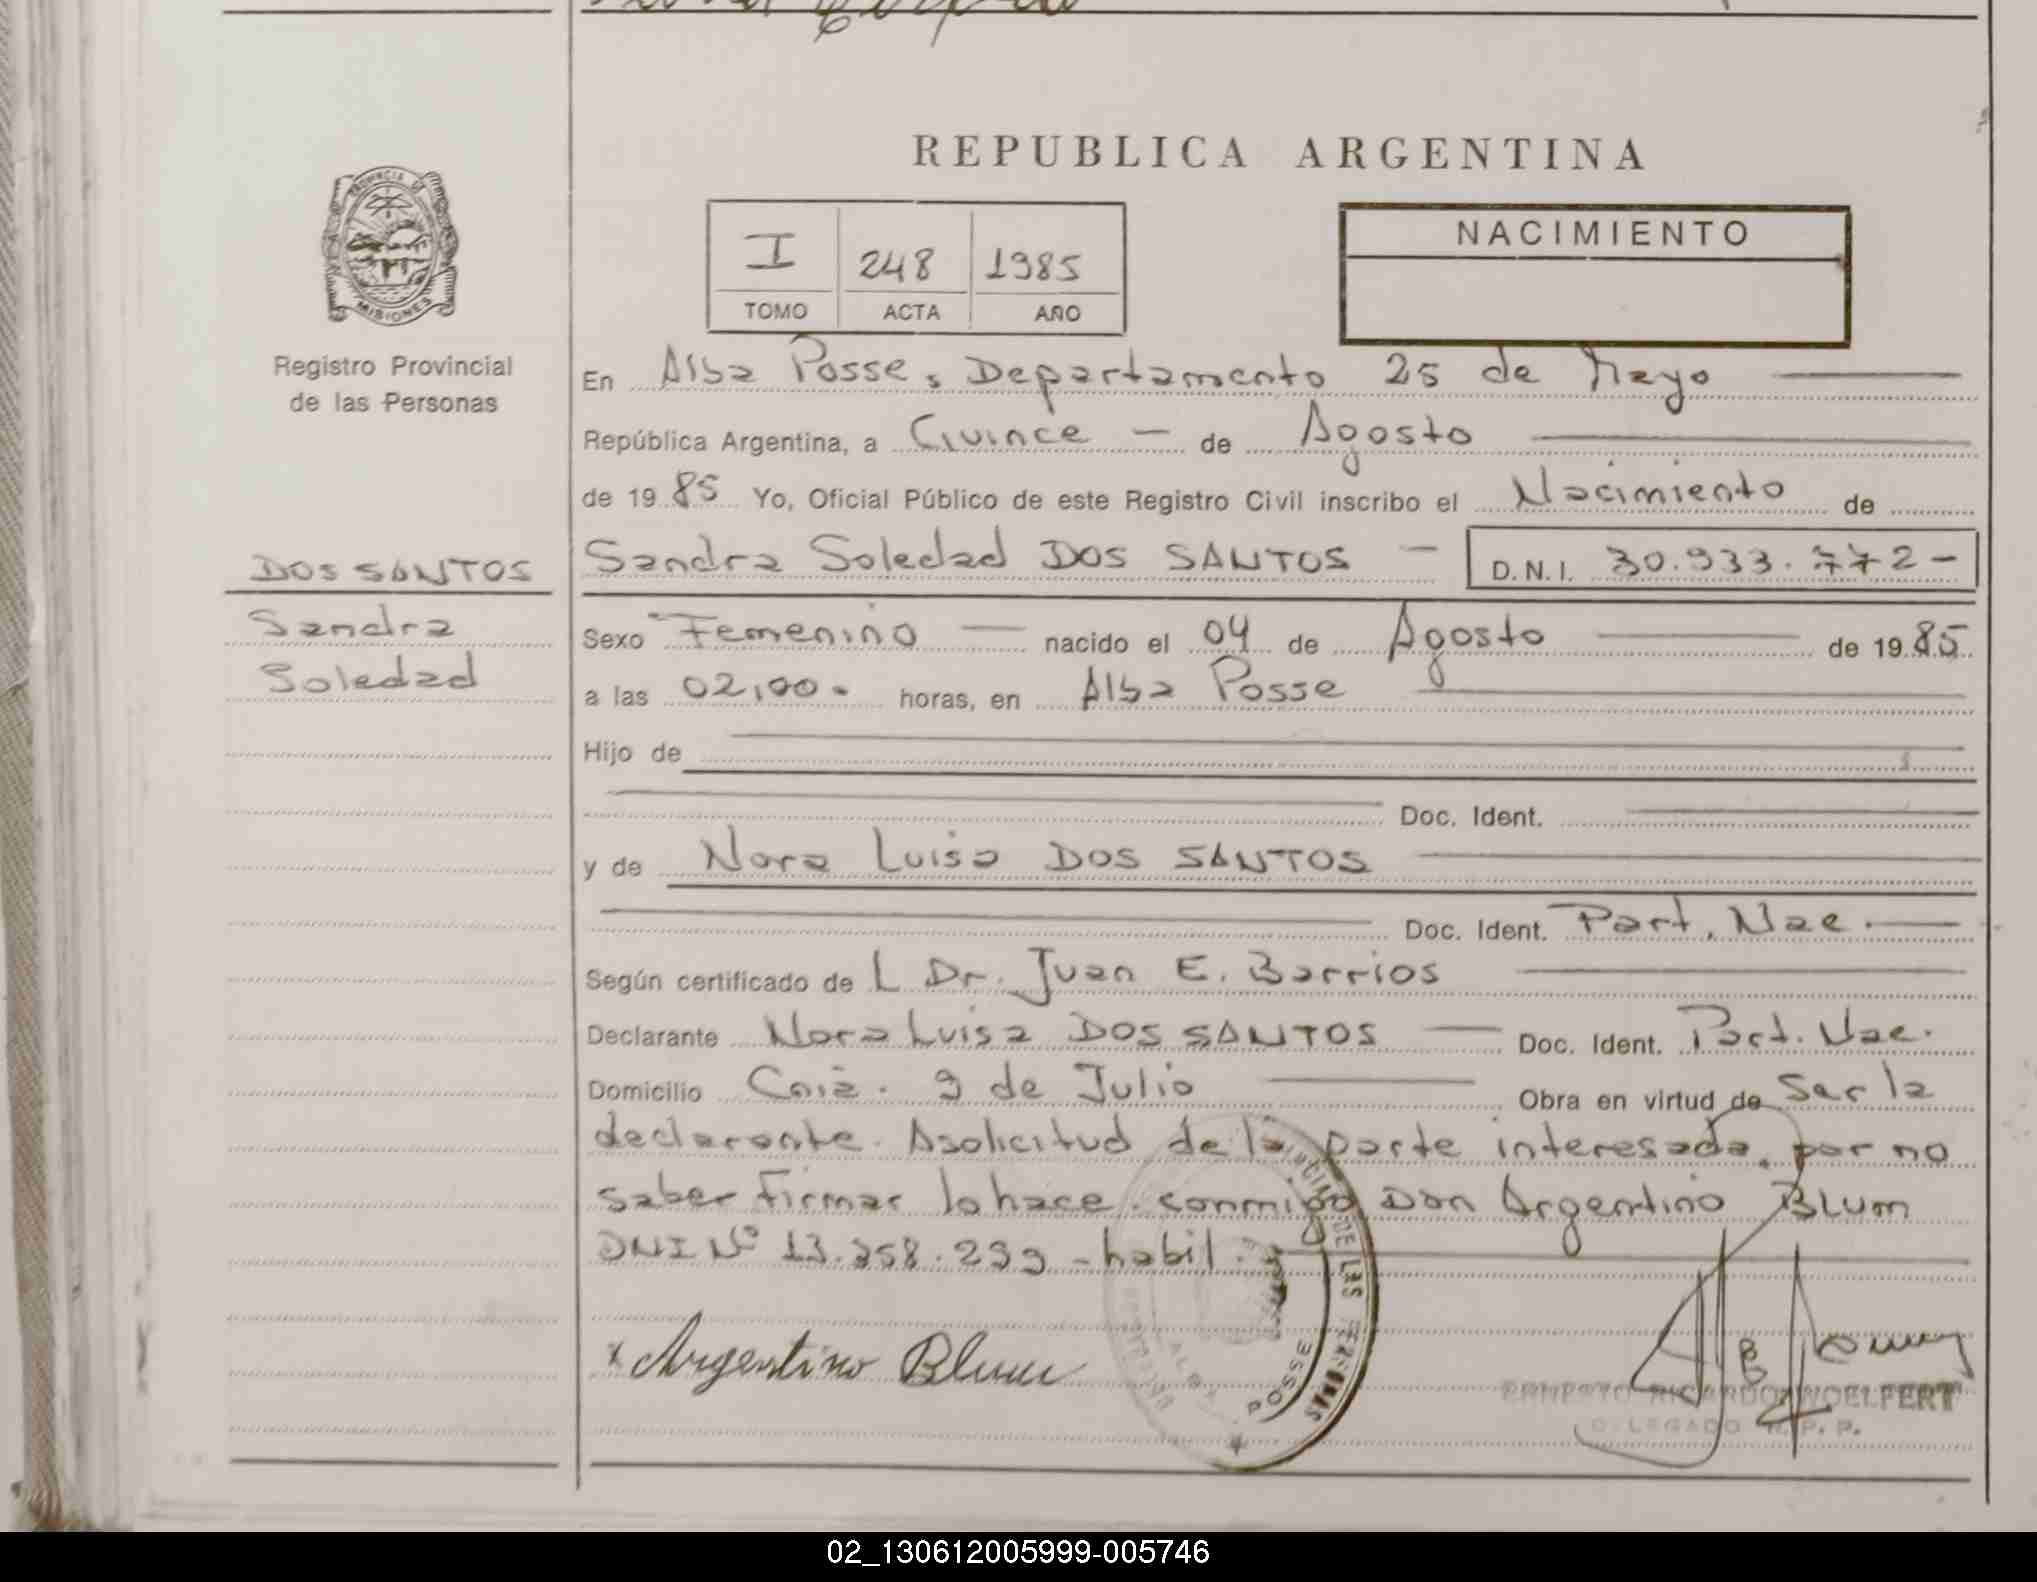 REPUBLICA ARGENTINA
PROVINCIA DE
MISIONES
Registro Provincial
de las Personas
I 248 1985
TOMO ACTA AÑO
NACIMIENTO
En Alba Posse, Departamento 25 de Mayo
República Argentina, a Quince - de Agosto
de 1985 Yo, Oficial Público de este Registro Civil inscribo el Nacimiento de
DOS SANTOS
Sandra
Soledad
Sandra Soledad DOS SANTOS - D.N.I. 30.933.772-
Sexo Femenino nacido el 04 de Agosto de 1985
a las 02,00. horas, en Alba Posse
Hijo de
Doc. Ident.
y de Nora Luisa DOS SANTOS
Doc. Ident. Part. Nac.
Según certificado de L Dr. Juan E. Barrios
Declarante Nora Luisa DOS SANTOS Doc. Ident. Part. Nac.
Domicilio Cnia. 9 de Julio Obra en virtud de ser la
declarante. A solicitud de la parte interesada, por no
saber firmar lo hace conmigo Don Argentino BLUM
DNI Nº 13.358.299 - habil.
x Argentino Blum
DE LAS PERSONAS
ALBA POSSE
ERNESTO RICARDO WOELFERT
DELEGADO R. P. P.
02_130612005999-005746